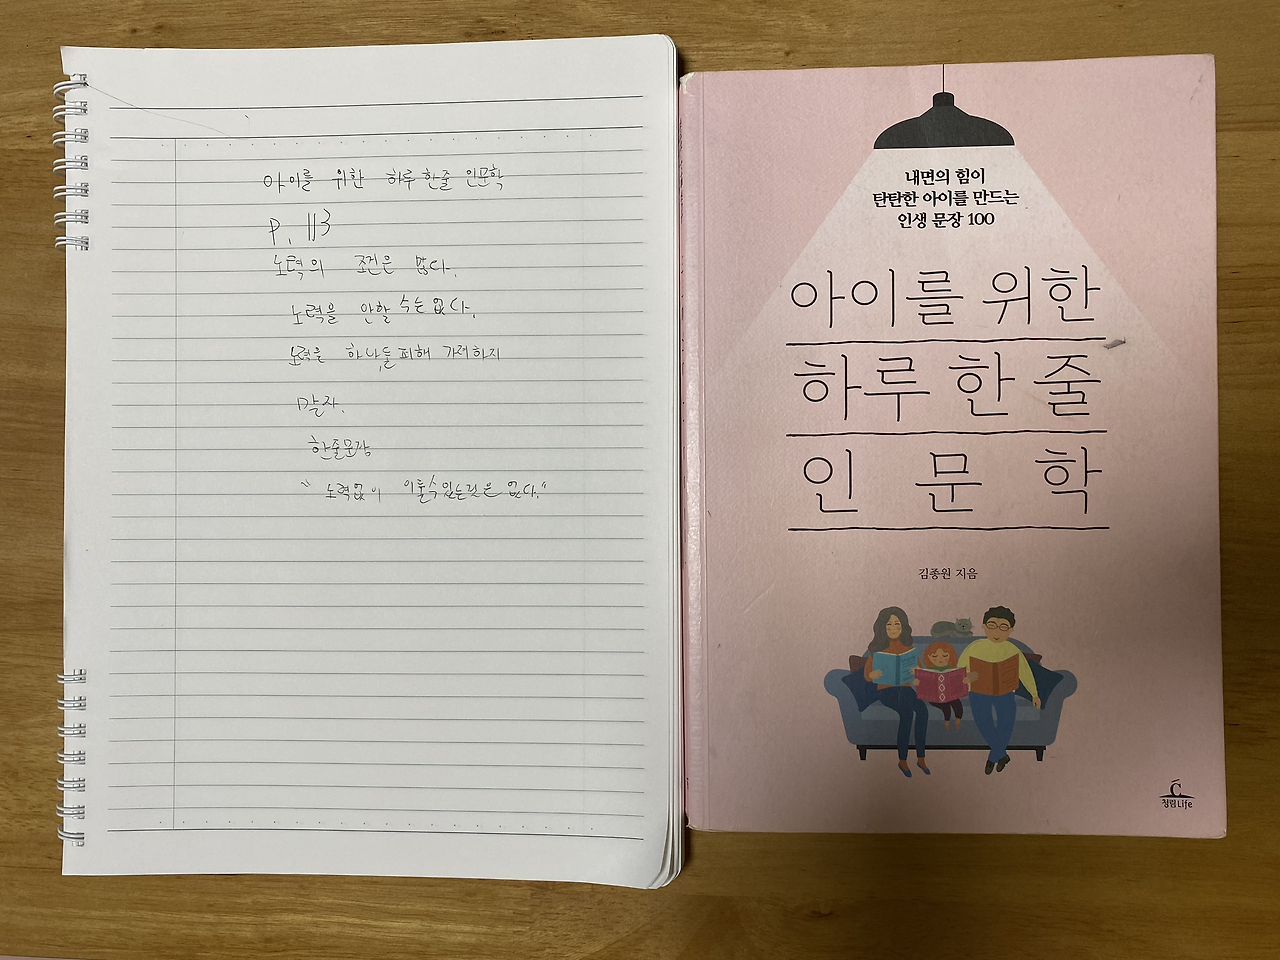 아이를 위한 하루 한줄 인문학
P. 113
노력의 조건은 많다.
노력을 안할 수는 없다.
노력은 하나, 둘 피해 가려하지
말자.
한줄문장
"노력없이 이룰수있는것은 없다."
내면의 힘이
탄탄한 아이를 만드는
인생 문장 100
아이를 위한
하루 한 줄
인 문 학
김종원 지음
청림Life